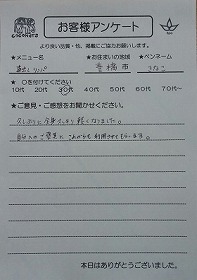 cocokara
お客様アンケート
より良い品質・技、掲載にご協力お願いします。
★メニュー名 ★お住まいの地域 ★ペンネーム
リンパ 豊橋市 きなこ
★○を付けてください
10代 20代 30代 40代 50代 60代 70代〜
★ご意見・ご感想をお聞かせください。
久しぶりに全身すっきり軽くなりました。
自分へのご褒美にこれからも利用させてもらいます。
本日はありがとうございました。